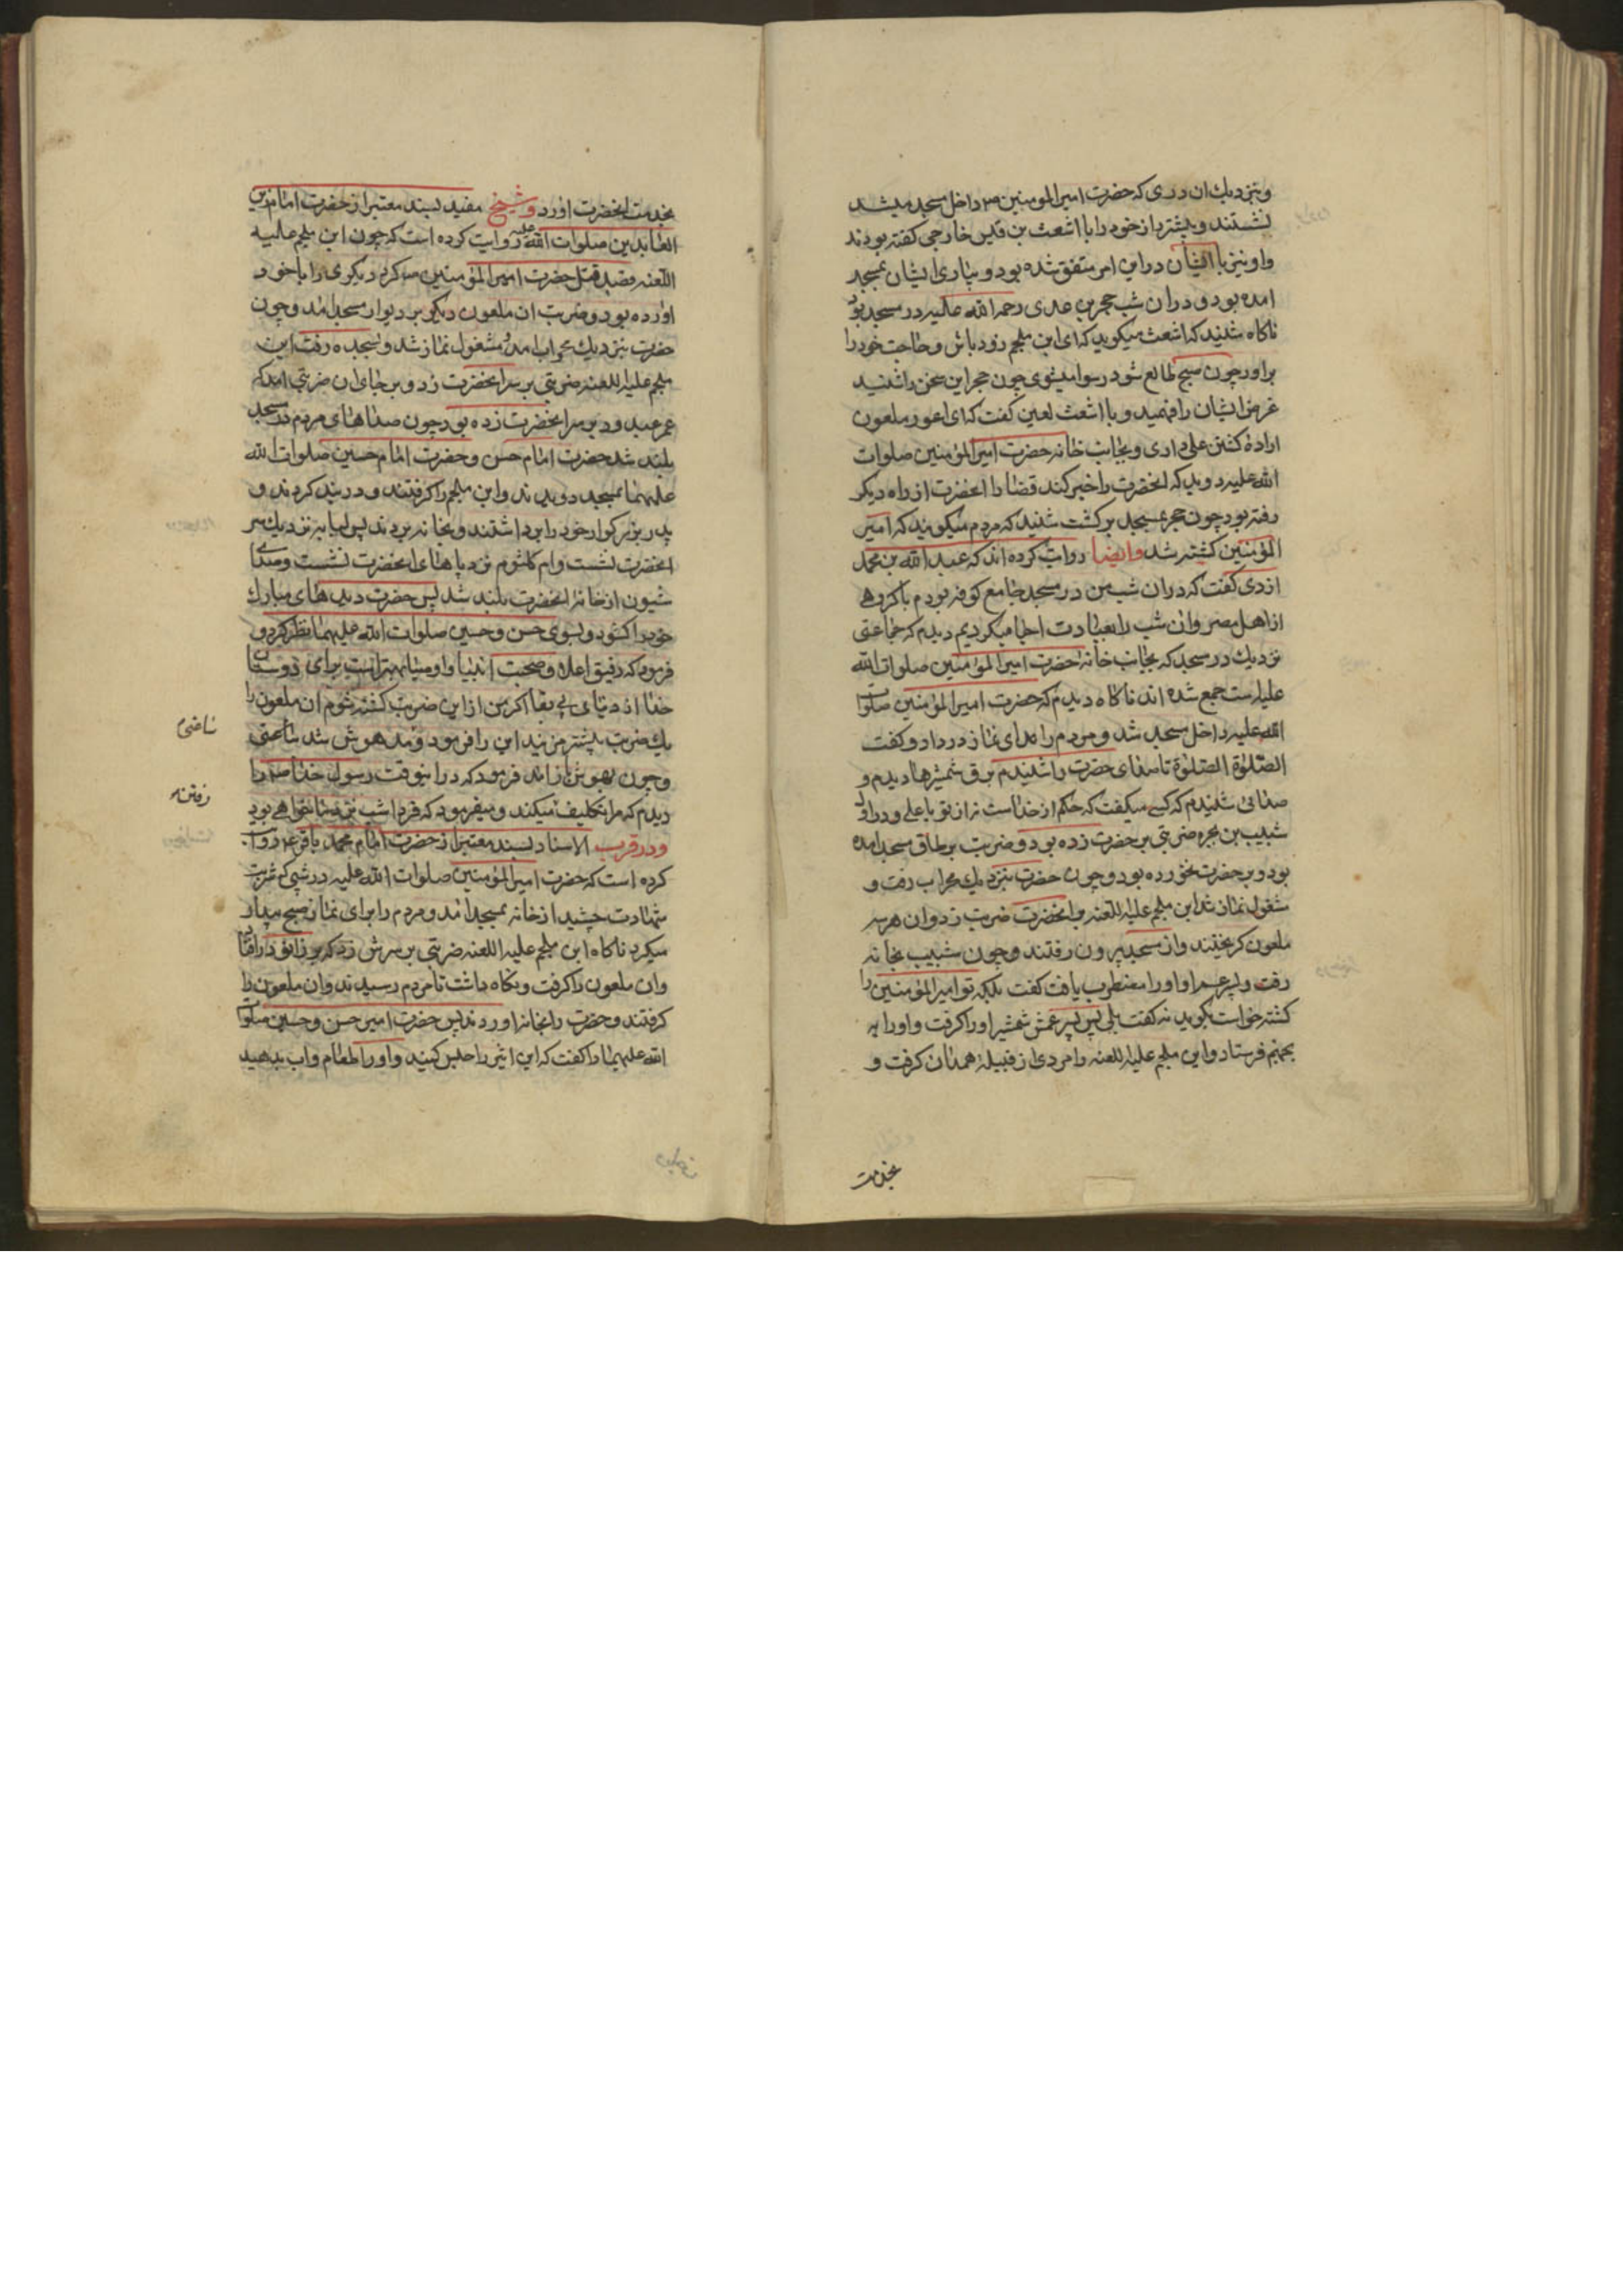 و بنزدیك ان دری که حضرت امیر المومنین ۳ داخل مسجد میشد
نشستند و پیشتر راز خود را با اشعث بن قیس خارجی کفته بودند
و او نیز با ایشان در این امر متفق شده بود و بیاری ایشان بمسجد
امده بود و در ان شب حجر بن عدی رحمه الله علیه در مسجد بود
ناکاه شنید که اشعث میکوید که ای ابن ملجم زود باش و حاجت خود را
براور چون صبح طالع شود رسوا میشوی چون حجر این سخن را شنید
غرض ایشان را فهمید و با اشعث لعین کفت که ای اعور ملعون
ارادهٔ کشتن علی داری و بجانب خانه حضرت امیر المؤمنین صلوات
الله علیه دوید که انحضرت را خبر کند قضا را انحضرت از راه دیکر
رفته بود چون حجر بمسجد برکشت شنید که مردم میکویند که امیر
المؤمنین کشته شد وایضا روایت کرده اند که عبد الله بن محمد
ازدی کفت که در ان شب من در مسجد جامع کوفه بودم با کروهی
از اهل مصر و ان شب را بعبادت احیا میکردیم دیدم که جماعتی
نزدیك در مسجد که بجانب خانهٔ حضرت امیر المؤمنین صلوات الله
علیه ست جمع شده اند ناکاه دیدم که حضرت امیر المؤمنین صلوات
الله علیه داخل مسجد شد و مردم را ندای نماز در داد و کفت
الصّلوٰة الصّلوٰة تا صدای حضرت را شنیدم برق شمشیرها دیدم و
صدائی شنیدم که کسی میکفت که حکم از خداست نه از تو یا علی و در اول
شبیب بن بجره ضربتی بر حضرت زده بود و ضربت بر طاق مسجد امده
بود و بر حضرت نخورده بود و چون حضرت بنزدیك محراب رفت و
مشغول نماز شد ابن ملجم علیه اللعنه بر انحضرت ضربت زد و ان هر سه
ملعون کریختند و از مسجد بیرون رفتند و چون شبیب بخانه
رفت و پسر عم او او را مضطرب یافت کفت بلکه تو امیر المؤمنین را
کشته خواست بکوید نه کفت بلی پس پسر عمش شمشیر او را کرفت و او را به
بجهنم فرستاد و ابن ملجم علیه اللعنه را مردی از قبیلهٔ همدان کرفت و
بخدمت
بخدمت انحضرت اورد و شیخ مفید بسند معتبر از حضرت امام زین
العابدین صلوات الله علیه روایت کرده است که چون ابن ملجم علیه
اللّعنه قصد قتل حضرت امیر المؤمنین میکرد دیکری را با خود
اورده بود و ضربت ان ملعون دیکر بر دیوار مسجد امد و چون
حضرت بنزدیك محراب امد و مشغول نماز شد و بسجده رفت ابن
ملجم علیه اللعنه ضربتی بر سر انحضرت زد و بر جای ان ضربتی امد که
عمر عبد ود بر سر انحضرت زده بود چون صداهای مردم در مسجد
بلند شد حضرت امام حسن و حضرت امام حسین صلوات الله
علیهما بمسجد دویدند و ابن ملجم را کرفتند و در بند کردند و
پدر بزرکوار خود را برداشتند و بخانه بردند پس لبابه نزدیك سر
انحضرت نشست و ام کلثوم نزد پاهای انحضرت نشست و صدای
شیون از خانهٔ انحضرت بلند شد پس حضرت دیدهای مبارك
خود را کشود و بسوی حسن و حسین صلوات الله علیهما نظر کرد و
فرمود که رفیق اعلا و صحبت انبیا و اوصیا بهتر است برای دوستان
خدا از دنیای بی بقا اکر من از این ضربت کشته شوم ان ملعون را
یك ضربت بیشتر مزنید این را فرمود و مدهوش شد ساعتی
و چون بهوش باز امد فرمود که در اینوقت رسول خدا ص را
دیدم که مرا تکلیف میکند و میفرمود که فردا شب نزد ما خواهی بود
و در قرب الاسناد بسند معتبر از حضرت امام محمد باقر ع روایت
کرده است که حضرت امیر المؤمنین صلوات الله علیه در شبی که شربت
شهادت چشید از خانه بمسجد امد و مردم را برای نماز صبح بیدار
میکرد ناکاه ابن ملجم علیه اللعنه ضربتی بر سرش زد که بر زانو در افتاد
و ان ملعون را کرفت و نکاه داشت تا مردم رسیدند و ان ملعون را
کرفتند و حضرت را بخانه اوردند پس حضرت امیر حسن و حسین صلوات
الله علیهما را کفت که این اسیر را حبس کنید و او را طعام و اب بدهید
رفتن